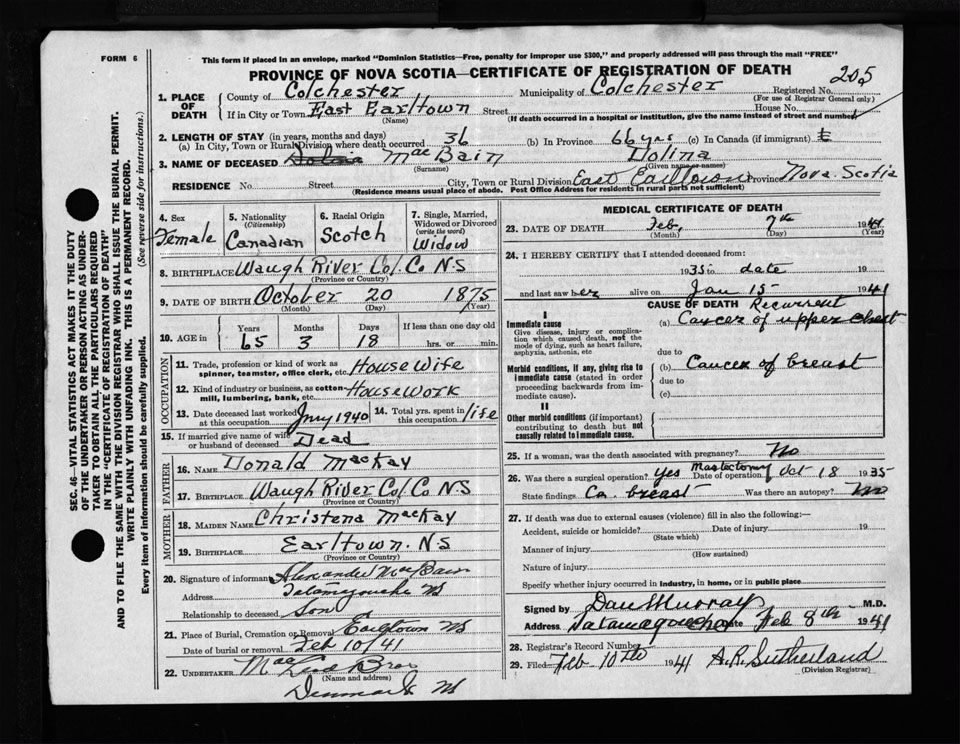 FORM 6
This form if placed in an envelope, marked "Dominion Statistics—Free, penalty for improper use $300," and properly addressed will pass through the mail "FREE"
PROVINCE OF NOVA SCOTIA—CERTIFICATE OF REGISTRATION OF DEATH
205
1. PLACE OF DEATH
County of Colchester Municipality of Colchester Registered No.
(For use of Registrar General only)
If in City or Town East Earltown Street House No.
(Name) (If death occurred in a hospital or institution, give the name instead of street and number)
2. LENGTH OF STAY (in years, months and days)
(a) In City, Town or Rural Division where death occurred 36 (b) In Province 66 yrs (c) In Canada (if immigrant)
3. NAME OF DECEASED MacBain Dolina
(Surname) (Given name or names)
RESIDENCE No. Street City, Town or Rural Division East Earltown Province Nova Scotia
(Residence means usual place of abode. Post Office Address for residents in rural parts not sufficient)
4. Sex Female
5. Nationality (Citizenship) Canadian
6. Racial Origin Scotch
7. Single, Married, Widowed or Divorced (write the word) Widow
8. BIRTHPLACE Waugh River Col. Co N.S
(Province or Country)
9. DATE OF BIRTH October 20 1875
(Month) (Day) (Year)
10. AGE in Years Months Days If less than one day
65 3 18 hrs. or min.
OCCUPATION
11. Trade, profession or kind of work as spinner, teamster, office clerk, etc. House Wife
12. Kind of industry or business, as cotton mill, lumbering, bank, etc. House Work
13. Date deceased last worked at this occupation 1940
14. Total yrs. spent in life
15. If married give name of wife or husband of deceased Dead
FATHER
16. NAME Donald MacKay
17. BIRTHPLACE Waugh River Col. Co N.S
(Province or Country)
MOTHER
18. MAIDEN NAME Christena MacKay
19. BIRTHPLACE Earltown. N.S
(Province or Country)
20. Signature of informant Alexander MacBain
Address Tatamagouche NS
Relationship to deceased Son
21. Place of Burial, Cremation or Removal Earltown NS
Date of burial or removal Feb 10/41
22. UNDERTAKER Bros
(Name and address)
Denmark NS
MEDICAL CERTIFICATE OF DEATH
23. DATE OF DEATH Feb. 7th 1941
(Month) (Day) (Year)
24. I HEREBY CERTIFY that I attended deceased from:
1935 to date 19
and last saw her alive on Jan 15 1941
CAUSE OF DEATH Recurrent
I
Immediate cause (a) Cancer of upper chest
Give disease, injury or complication which caused death, not the mode of dying, such as heart failure, asphyxia, asthenia, etc
due to
Morbid conditions, if any, giving rise to immediate cause (stated in order proceeding backwards from immediate cause).
(b) Cancer of breast
due to
(c)
II
Other morbid conditions (if important) contributing to death but not causally related to immediate cause.
25. If a woman, was the death associated with pregnancy? No
26. Was there a surgical operation? yes Mastectomy Date of operation Oct 18 1935
State findings Ca. breast Was there an autopsy? No
27. If death was due to external causes (violence) fill in also the following:—
Accident, suicide or homicide? Date of injury 19
(State which)
Manner of injury
(How sustained)
Nature of injury
Specify whether injury occurred in industry, in home, or in public place
Signed by Dan Murray M.D.
Address Tatamagouche Date Feb 8th 1941
28. Registrar's Record Number
29. Filed Feb 10th 1941 A.R. Sutherland
(Division Registrar)
SEC. 46—VITAL STATISTICS ACT MAKES IT THE DUTY
OF THE UNDERTAKER OR PERSON ACTING AS UNDER-
TAKER TO OBTAIN ALL THE PARTICULARS REQUIRED
IN THE "CERTIFICATE OF REGISTRATION OF DEATH"
AND TO FILE THE SAME WITH THE DIVISION REGISTRAR WHO SHALL ISSUE THE BURIAL PERMIT.
WRITE PLAINLY WITH UNFADING INK. THIS IS A PERMANENT RECORD.
Every item of information should be carefully supplied. (See reverse side for instructions.)